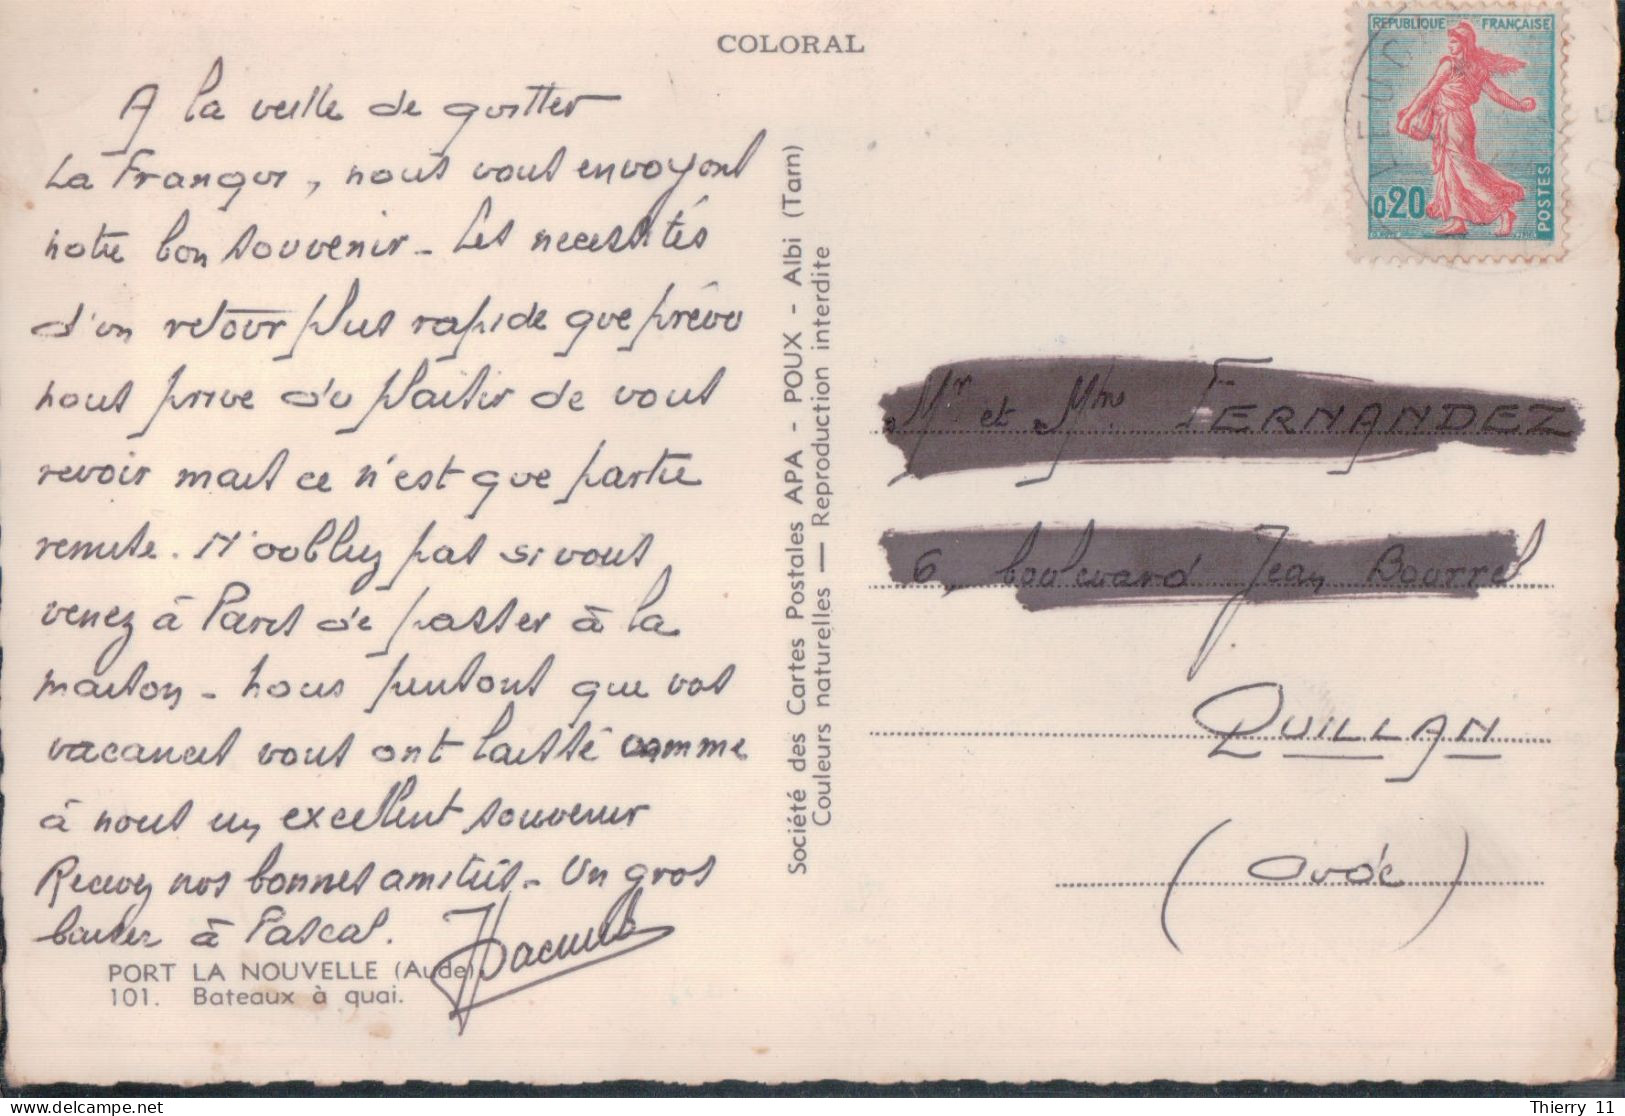 COLORAL
A la veille de quitter
La Franqui, nous vous envoyons
notre bon souvenir - Les necessités
d'un retour plus rapide que prévu
nous prive du plaisir de vous
revoir mais ce n'est que partie
remise. N'oubliez pas si vous
venez à Paris de passer à la
maison - Nous pensons que vos
vacances vous ont laissé comme
à nous un excellent souvenir
Recevez nos bonnes amitiés - Un gros
baiser à Pascal.
PORT LA NOUVELLE (Aude)
101. Bateaux à quai.
Société des Cartes Postales APA - POUX - Albi (Tarn)
Couleurs naturelles — Reproduction interdite
REPUBLIQUE FRANÇAISE
0,20
POSTES
Mr et Mme FERNANDEZ
6, boulevard Jean Bourrel
QUILLAN
(Aude)
Thierry 11